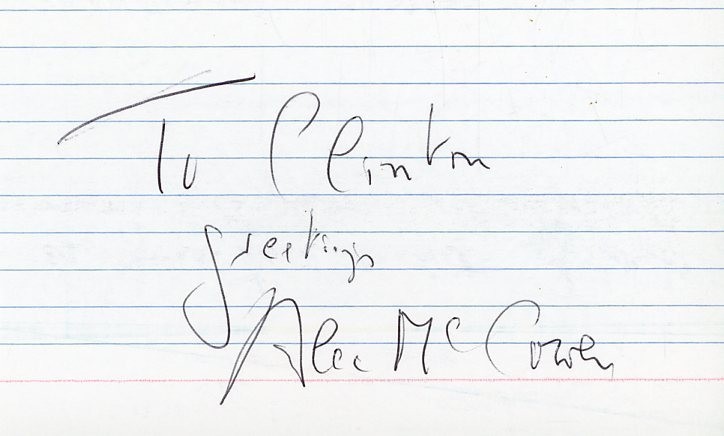 To Clinton
greetings
Alec McCowen